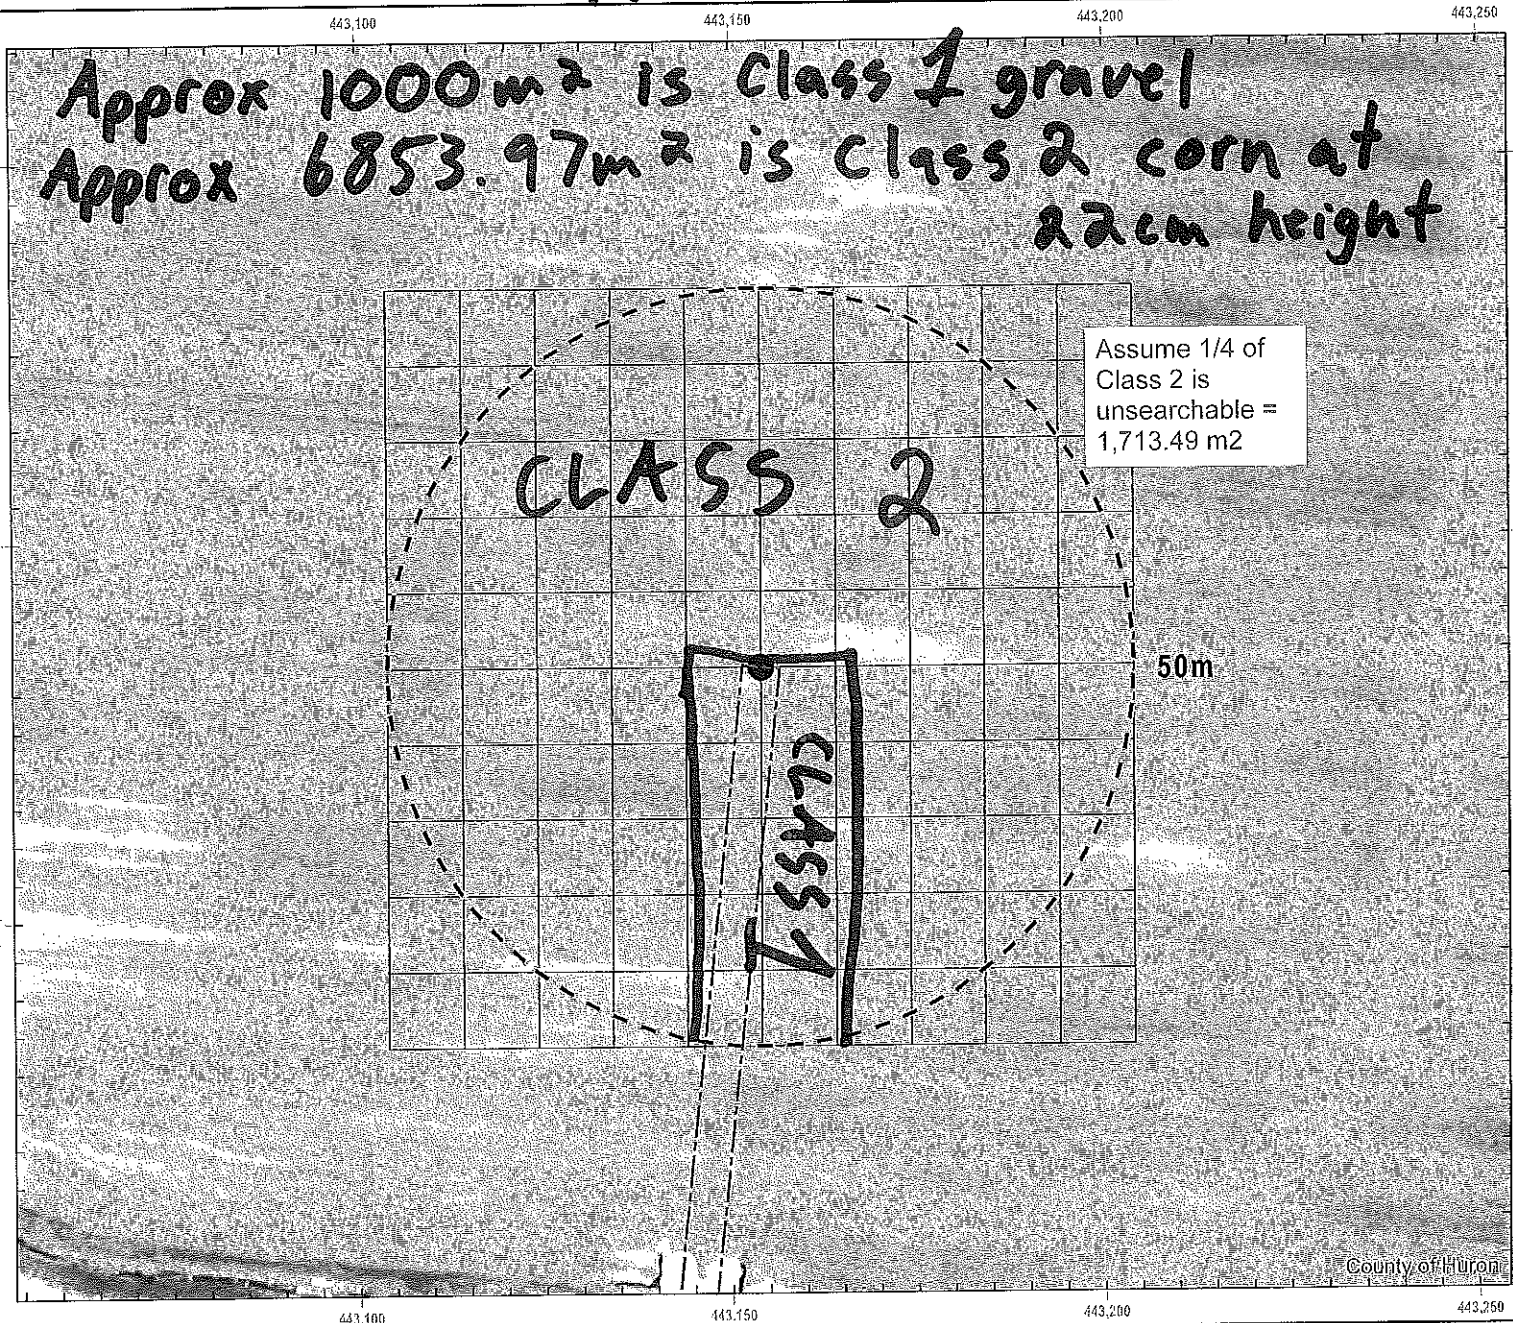 443,100 443,150 443,200 443,250
Approx 1000m² is Class 1 gravel
Approx 6853.97m² is Class 2 corn at
22cm height
Assume 1/4 of
Class 2 is
unsearchable =
1,713.49 m2
CLASS 2
50m
CLASS 1
County of Huron
443,100 443,150 443,200 443,250